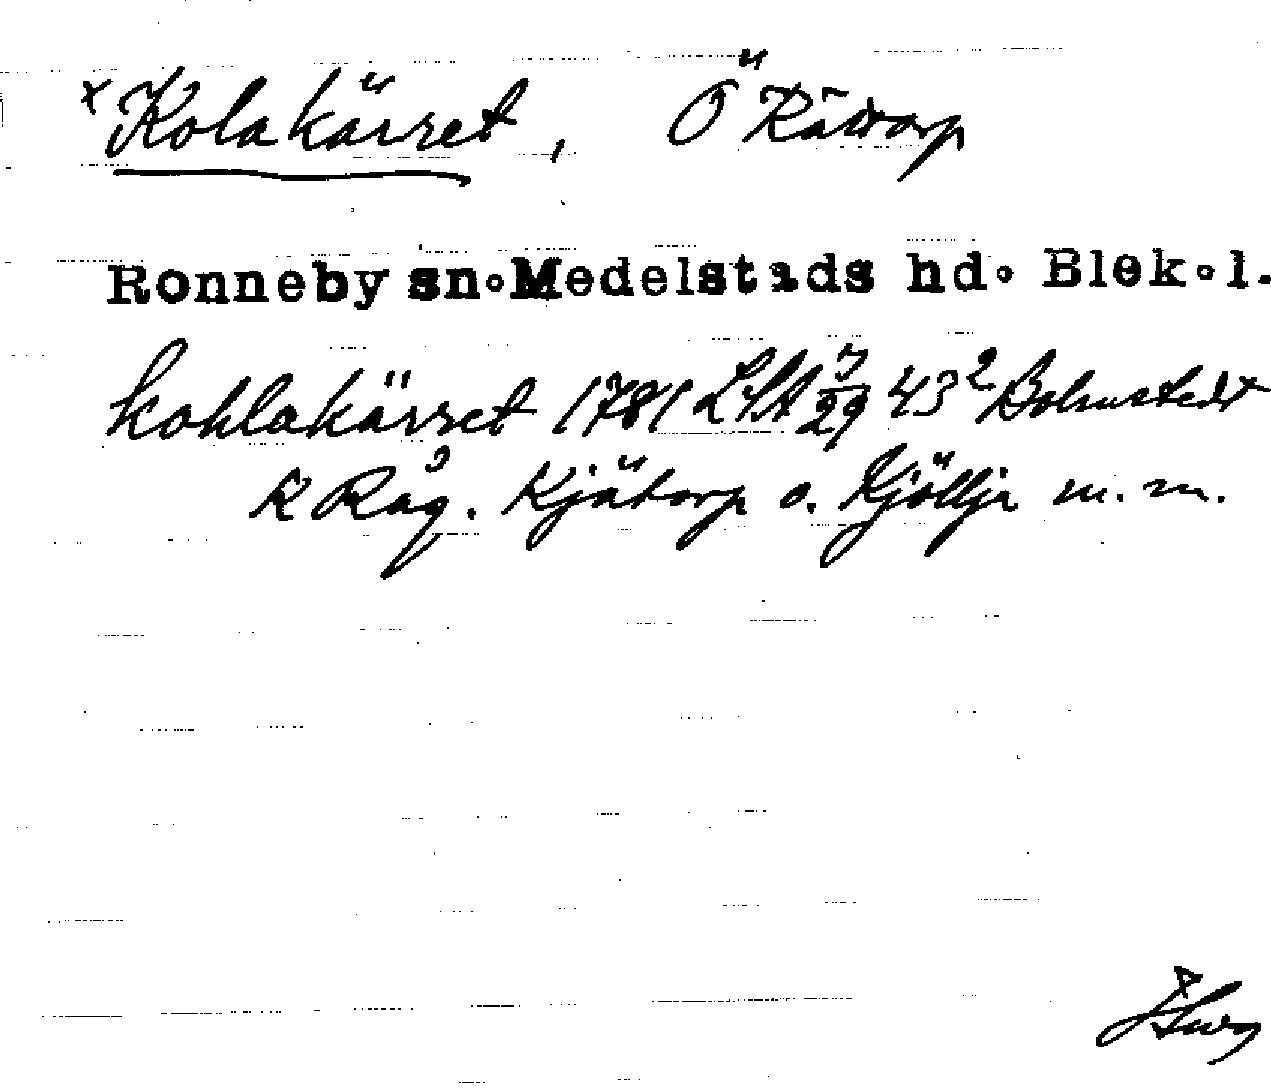 x Kolakärret, Ö Kätorp
Ronneby sn. Medelstads hd. Blek. l.
kohlakärret 1781 LSA 7/29 43² Bolmstedt
k Råg. Kjätorp o. Kjöllja m. m.